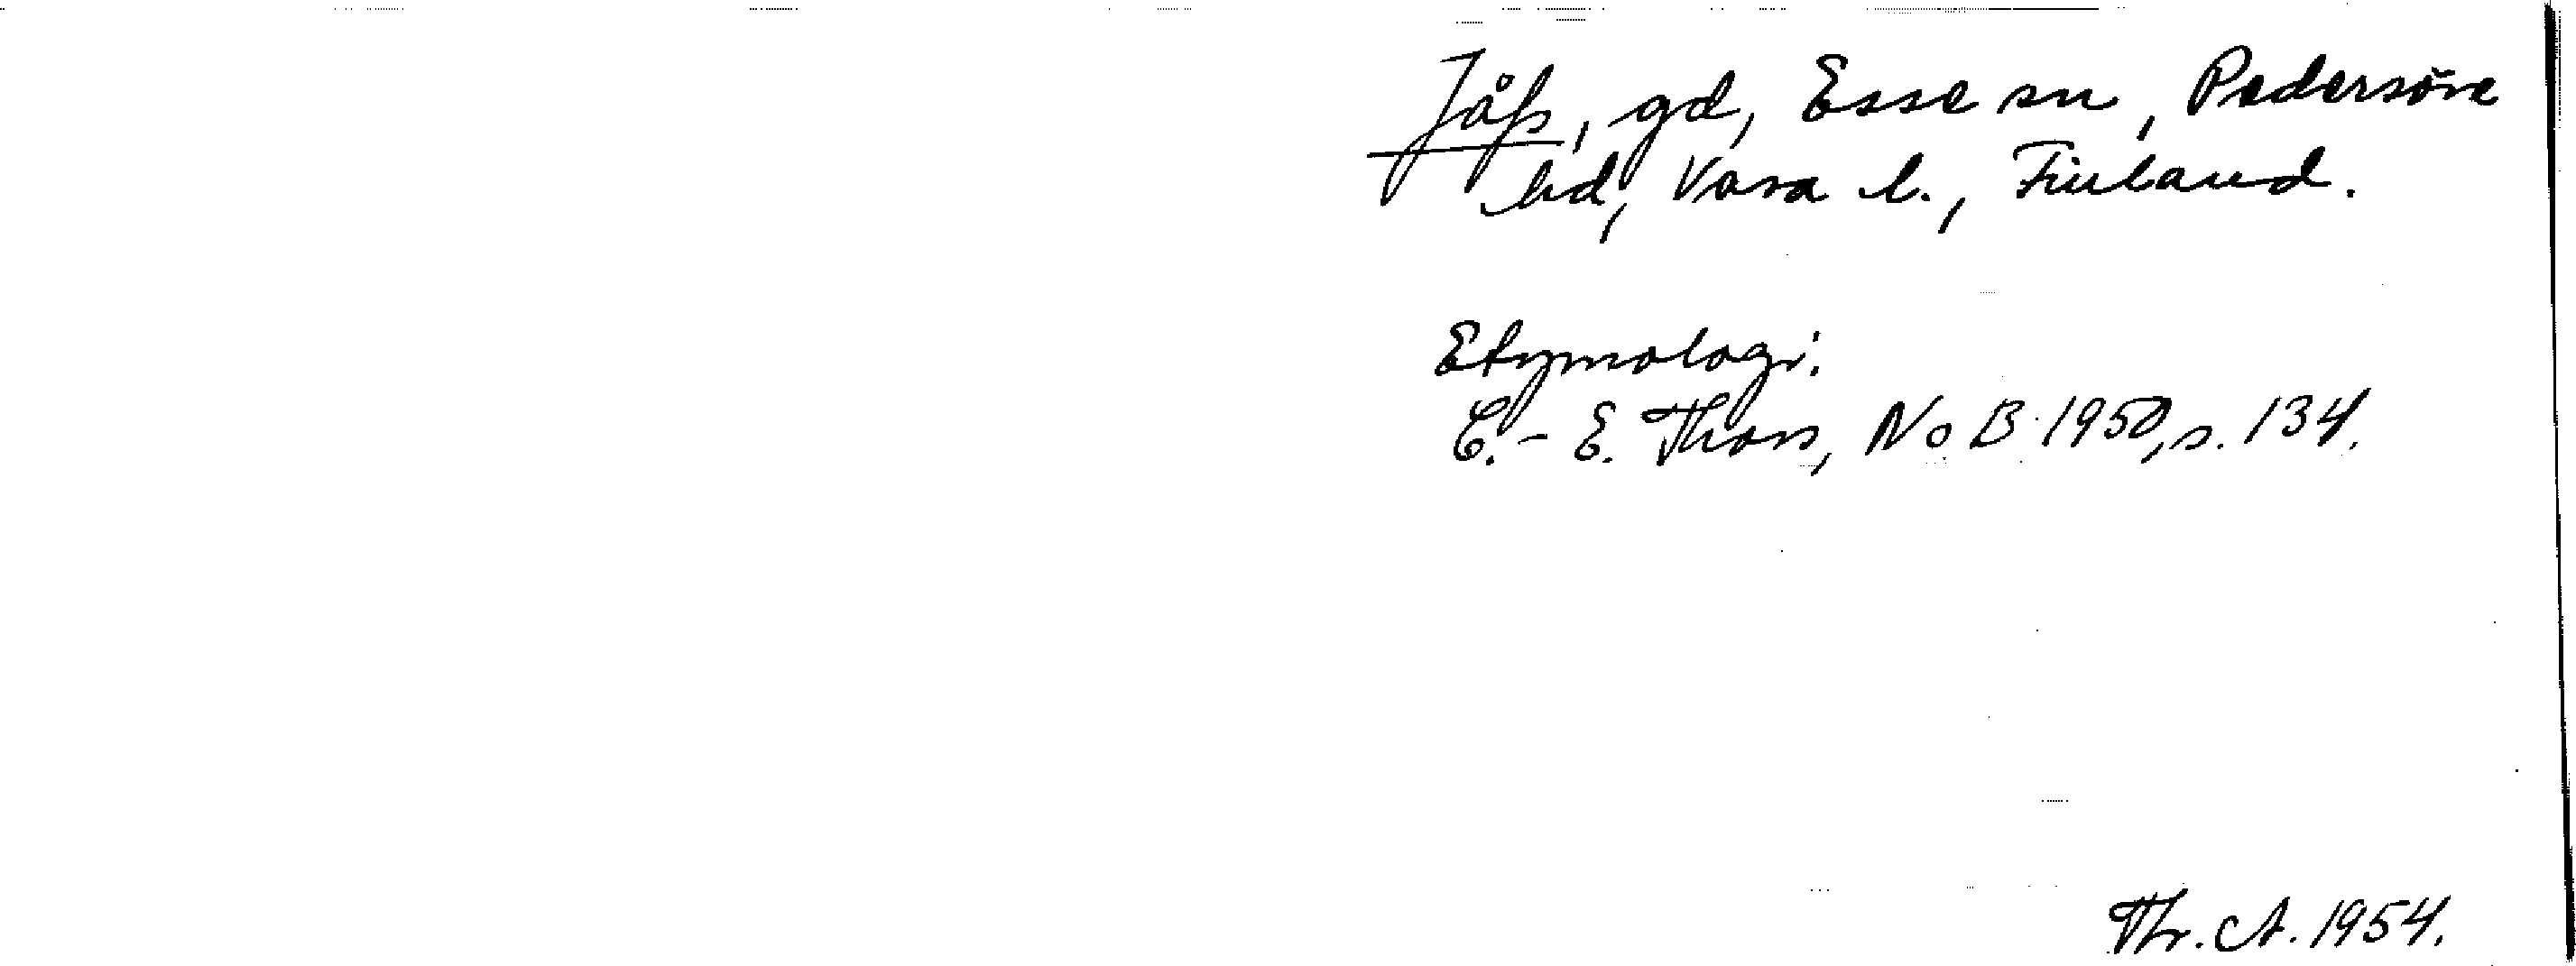 Jåfs, gd, Esse sn, Pedersöre
hd, Vasa l., Finland.
Etymologi:
C.-E. Thors, NoB 1950, s. 134.
Th. A. 1954.